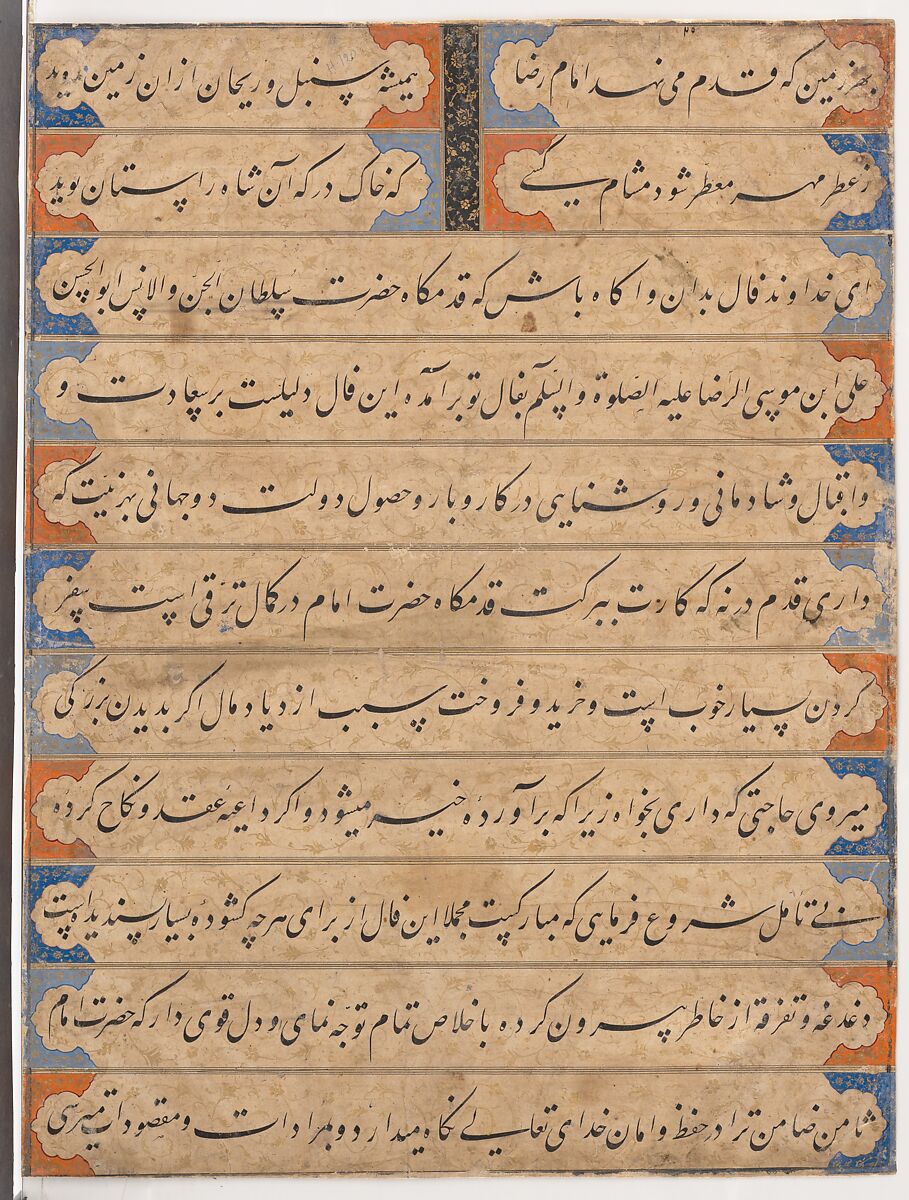 بهر زمین که قدم می نهد امام رضا
همیشه سنبل و ریحان ازان زمین روید
ز عطر مهر معطر شود مشام کسی
که خاک درکه آن شاه راستان بوید
ای خداوند فال بدان و اکاه باش که قدمکاه حضرت سلطان الجن والانس ابوالحسن
علی ابن موسی الرضا علیه الصلوة والسلم بفال تو برآمده این فال دلیلست بر سعادت و
واقبال و شادمانی و روشنایی در کار و بار و حصول دولت دوجهانی بهر نیت که
داری قدم در نه که کارت ببرکت قدمکاه حضرت امام در کمال ترقی است سفر
کردن بسیار خوب است و خرید و فروخت سبب ازدیاد مال اکر بدیدن بزرکی
میروی حاجتی که داری بخواه زیرا که برآورده خیر میشود و اکر داعیهٔ عقد و نکاح کرده
بی تأمل شروع فرمایی که مبارکست مجملا این فال از برای هرچه کشودهٔ بسیار پسندیده است
دغدغه و تفرقه از خاطر بیرون کرده باخلاص تمام توجه نمای و دل قوی دار که حضرت امام
ثامن ضامن ترا در حفظ و امان خدای تعالی نکاه میدارد و بمرادات و مقصودات میرسی